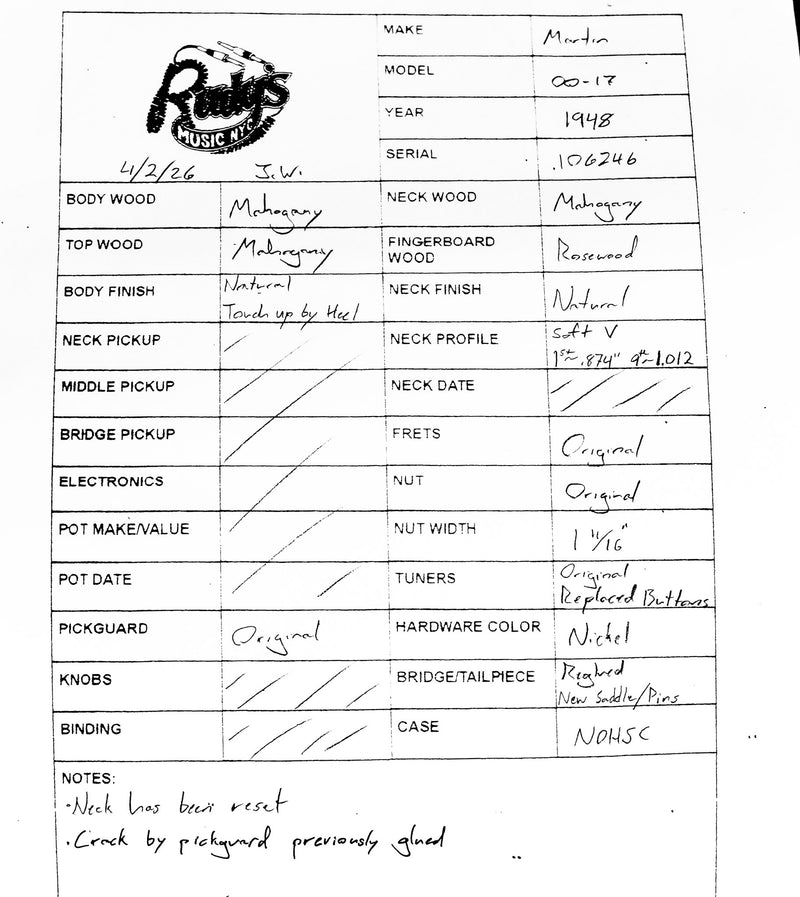 Rudy's
MUSIC NYC
4/2/26 J.W.
MAKE Martin
MODEL 00-17
YEAR 1948
SERIAL 106246
BODY WOOD Mahogany NECK WOOD Mahogany
TOP WOOD Mahogany FINGERBOARD WOOD Rosewood
BODY FINISH Natural
Touch up by Heel
NECK FINISH Natural
NECK PICKUP NECK PROFILE Soft V
1st~.874" 9th~1.012
MIDDLE PICKUP NECK DATE
BRIDGE PICKUP FRETS Original
ELECTRONICS NUT Original
POT MAKE/VALUE NUT WIDTH 1 11/16"
POT DATE TUNERS Original
Replaced Buttons
PICKGUARD Original HARDWARE COLOR Nickel
KNOBS BRIDGE/TAILPIECE Reglued
New Saddle/Pins
BINDING CASE NOHSC
NOTES:
·Neck has been reset
·Crack by pickguard previously glued